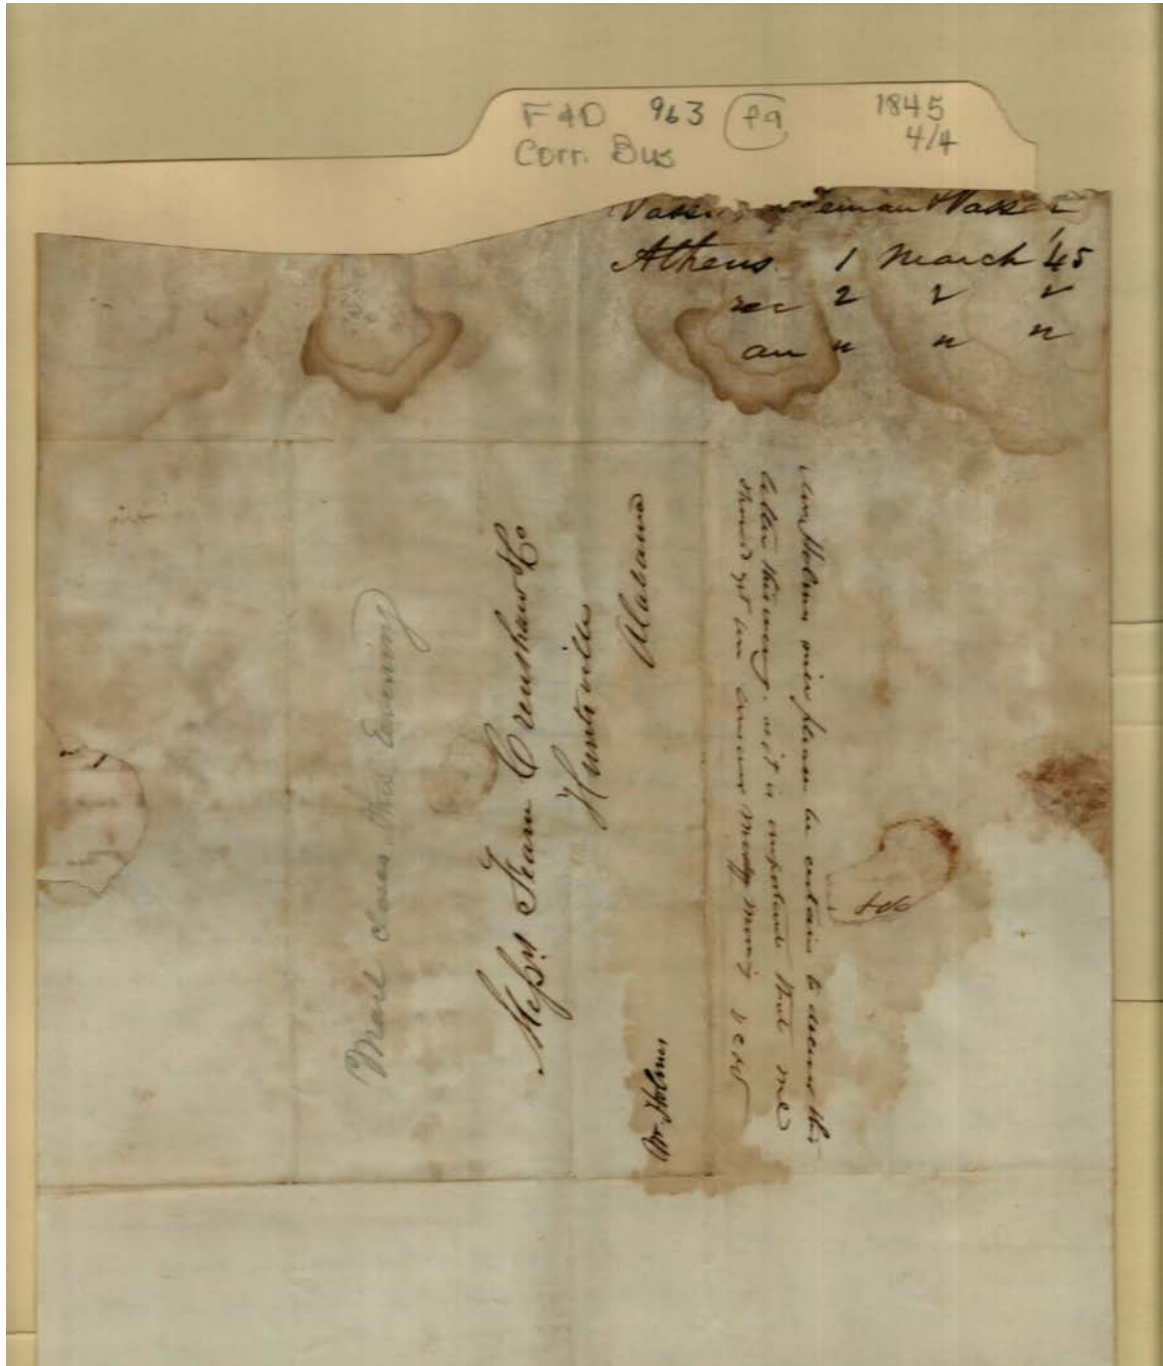 F&D 963 fa 1845
Corr. Bus 4/4
Vasser
Athens 1 March '45
rec 2 " "
an " " "
Mail closes this Evening
Messrs Fearn Crenshaw & Co
Huntsville
Alabama
Mr Holmes
Holmes will please be certain to deliver this
letter this evening, as it is important that we
should get an answer morning